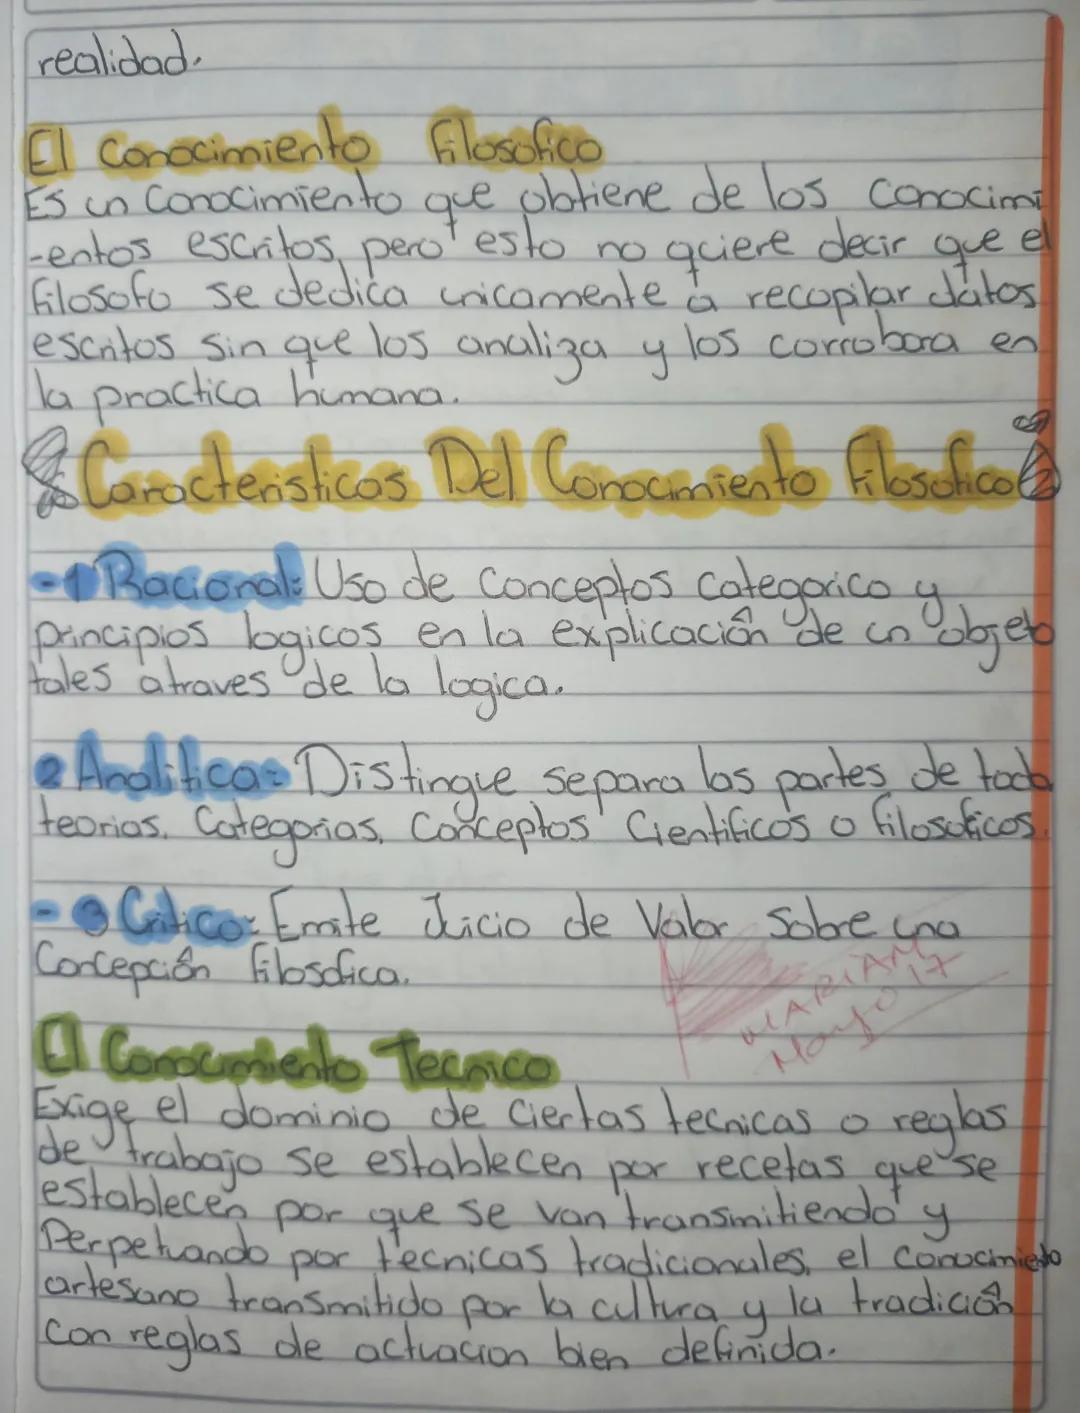 realidad.
El Conocimiento filosofico
Es un Conocimiento que obtiene de los conocimi
-entos escritos, pero esto no quiere decir que el
filosofo se dedica unicamente a recopilar datos
escritos sin que los analiza y los corrobora en
la practica humana.
Caracteristicas Del Conocimiento filosofico
-1 Racional: Uso de conceptos categorico y
principios logicos en la explicación de un objeto
tales atraves de la logica.
2 Analitica: Distingue separa las partes de toda
teorias, Categorias, Conceptos Cientificos o filosoficos.
- 3 Critico: Emite Juicio de Valor Sobre una
Concepción filosofica.
MARIAM
Mayo 17
El Conocmiento Tecnico
Exige el dominio de ciertas tecnicas o reglas
de trabajo se establecen por recetas que se
establecen por que se van transmitiendo y
Perpetuando por tecnicas tradicionales, el conocimiento
artesano transmitido por la cultura y la tradición
con reglas de actuacion bien definida.